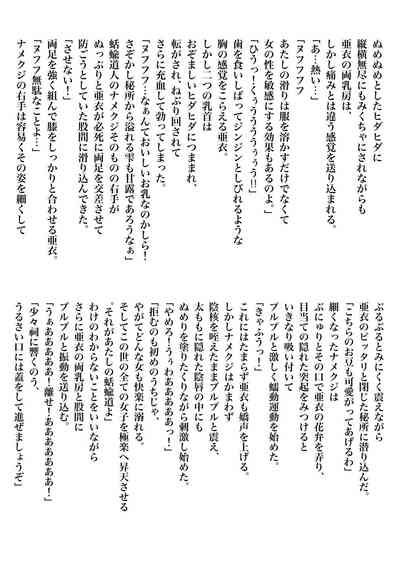 ぬめぬめとしたヒダヒダに
縦横無尽にもみくちゃにされながらも
亜衣の両乳房は、
しかし痛みとは違う感覚を送り込まれる。
「あ…熱い…」
「ヌフフフフ
あたしの滑りは服を溶かすだけでなくて
女の性を敏感にする効果もあるのよ。」
「ひうっ！くぅううううぅぅっ!!」
歯を食いしばってジンジンとしびれるような
胸の感覚をこらえる亜衣。
しかし二つの乳首は
おぞましいヒダヒダにつつまれ、
転がされ、ねぶり回されて
さらに充血して勃ってしまった。
「ヌフフフ…なぁんておいしいお乳なのかしら！
さぞかし秘所から溢れる雫も甘露であろうなぁ」
蛞蝓道人のナメクジそのものの右手が
ぬっぷりと亜衣が必死に両足を交差させて
防ごうとしていた股間に滑り込んできた。
「させない！」
両足を強く組んで膝をしっかりと合わせる亜衣。
「ヌフフ無駄なことよ…」
ナメクジの右手は容易くその姿を細くして
ぶるぶるとみにくく震えながら
亜衣のピッタリと閉じた秘所に潜り込んだ。
「こちらのお豆も可愛がってあげるわ」
細くなったナメクジは
ぷにゅりとその口で亜衣の花弁を弄り、
目当ての隠れた突起をみつけると
いきなり吸い付いて
プルプルと激しく蠕動運動を始めた。
「きゃふうっー！」
これにはたまらず亜衣も嬌声を上げる。
しかしナメクジはかまわず
陰核を咥えたままプルプルと震え、
太ももに隠れた陰唇の中にも
ぬめりを塗りたくりながら刺激し始めた。
「やめろ！うぅわああああっ！…」
「拒むのも初めのうちじゃ、
やがてどんな女も快楽に溺れる。
そしてこの世の全ての女子を極楽へ昇天させる
…それがあたしの蛞蝓道よ」
わけのわからないことをいいながら
さらに亜衣の両乳房と股間に
プルプルと振動を送り込む。
「うぁああああ！離せ！ああああああ！」
「少々祠に響くのう、
うるさい口には蓋をして進ぜましょうぞ」